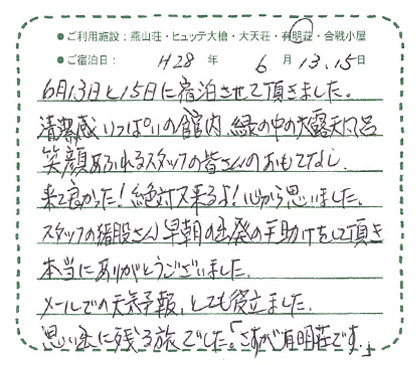 ●ご利用施設：燕山荘・ヒュッテ大槍・大天荘・有明荘・合戦小屋
●ご宿泊日： H28 年 6 月 13.15 日
6月13日と15日に宿泊させて頂きました。
清潔感いっぱいの館内、緑の中の大露天風呂
笑顔あふれるスタッフの皆さんのおもてなし、
来て良かった！絶対又来るよ！心から思いました。
スタッフの猪股さん早朝の出発の手助けをして頂き
本当にありがとうございました。
メールでの天気予報、とても役立ました。
思い出に残る旅でした。「さすが有明荘です。」